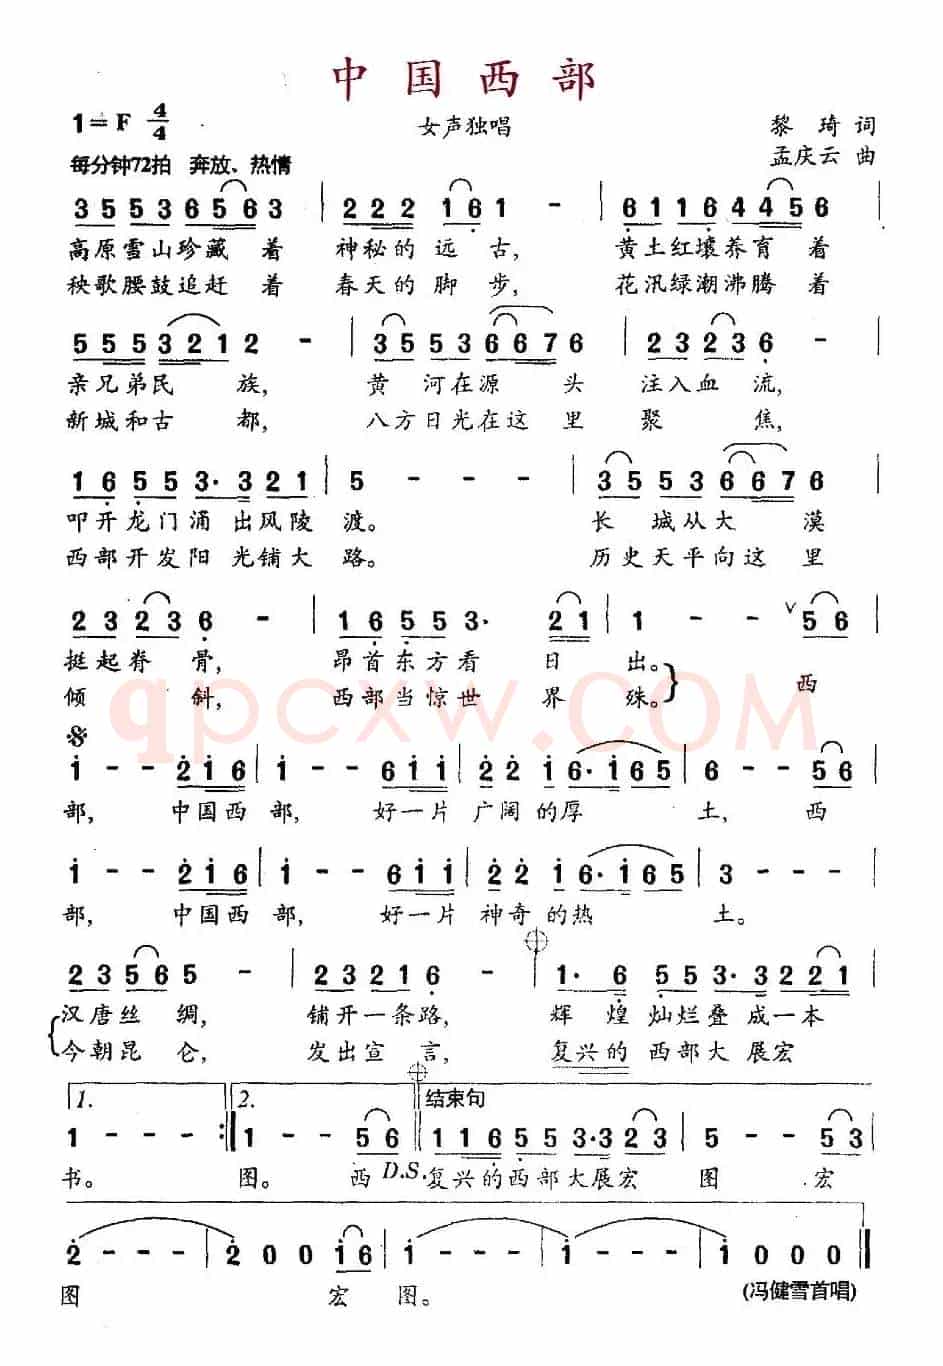 中国西部
1=F 4/4
女声独唱
黎琦 词
每分钟72拍 奔放、热情
孟庆云 曲
3 5 5 3 6 5 6 3 | 2 2 2 1 6 1 - | 6 1 1 6 4 4 5 6 |
高原雪山珍藏着 神秘的远古, 黄土红壤养育着
秧歌腰鼓追赶着 春天的脚步, 花汛绿潮沸腾着
5 5 5 3 2 1 2 - | 3 5 5 3 6 6 7 6 | 2 3 2 3 6 - |
亲兄弟民族, 黄河在源头 注入血流,
新城和古都, 八方日光在这里 聚焦,
1 6 5 5 3· 3 2 1 | 5 - - - | 3 5 5 3 6 6 7 6 |
叩开龙门涌出风陵渡。 长城从大漠
西部开发阳光铺大路。 历史天平向这里
2 3 2 3 6 - | 1 6 5 5 3· 2 1 | 1 - - ∨ 5 6 |
挺起脊骨, 昂首东方看日出。
倾斜, 西部当惊世界殊。 西
qpcxw.COM
1 - - 2 1 6 | 1 - - 6 1 1 | 2 2 1 6· 1 6 5 | 6 - - 5 6 |
部, 中国西部, 好一片广阔的厚土, 西
1 - - 2 1 6 | 1 - - 6 1 1 | 2 2 1 6· 1 6 5 | 3 - - - |
部, 中国西部, 好一片神奇的热土。
2 3 5 6 5 - | 2 3 2 1 6 - | 1· 6 5 5 3· 3 2 2 1 |
汉唐丝绸, 铺开一条路, 辉煌灿烂叠成一本
今朝昆仑, 发出宣言, 复兴的西部大展宏
1. 2. 结束句
1 - - - :| 1 - - 5 6 | 1 1 6 5 5 3· 3 2 3 | 5 - - 5 3 |
书。 图。 西 D.S. 复兴的西部大展宏图 宏
2 - - - | 2 0 0 1 6 | 1 - - - | 1 - - - | 1 0 0 0 |
图 宏图。
(冯健雪首唱)